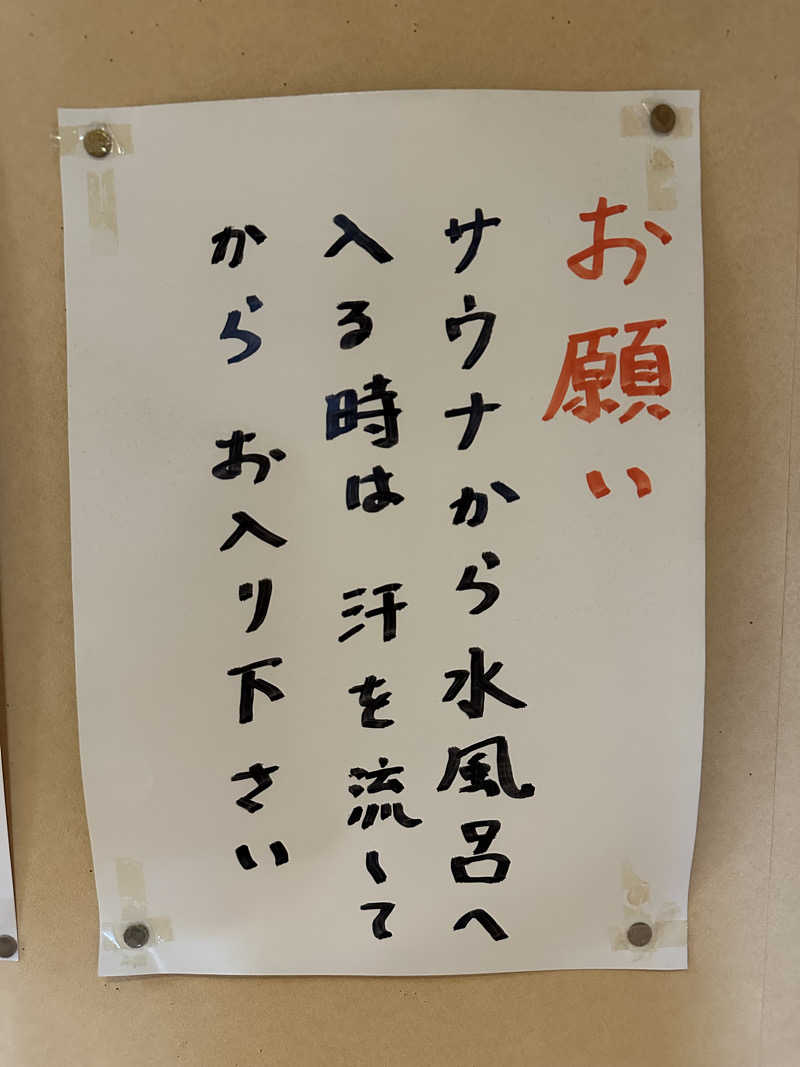 お願い
サウナから水風呂へ
入る時は 汗を流して
から お入り下さい